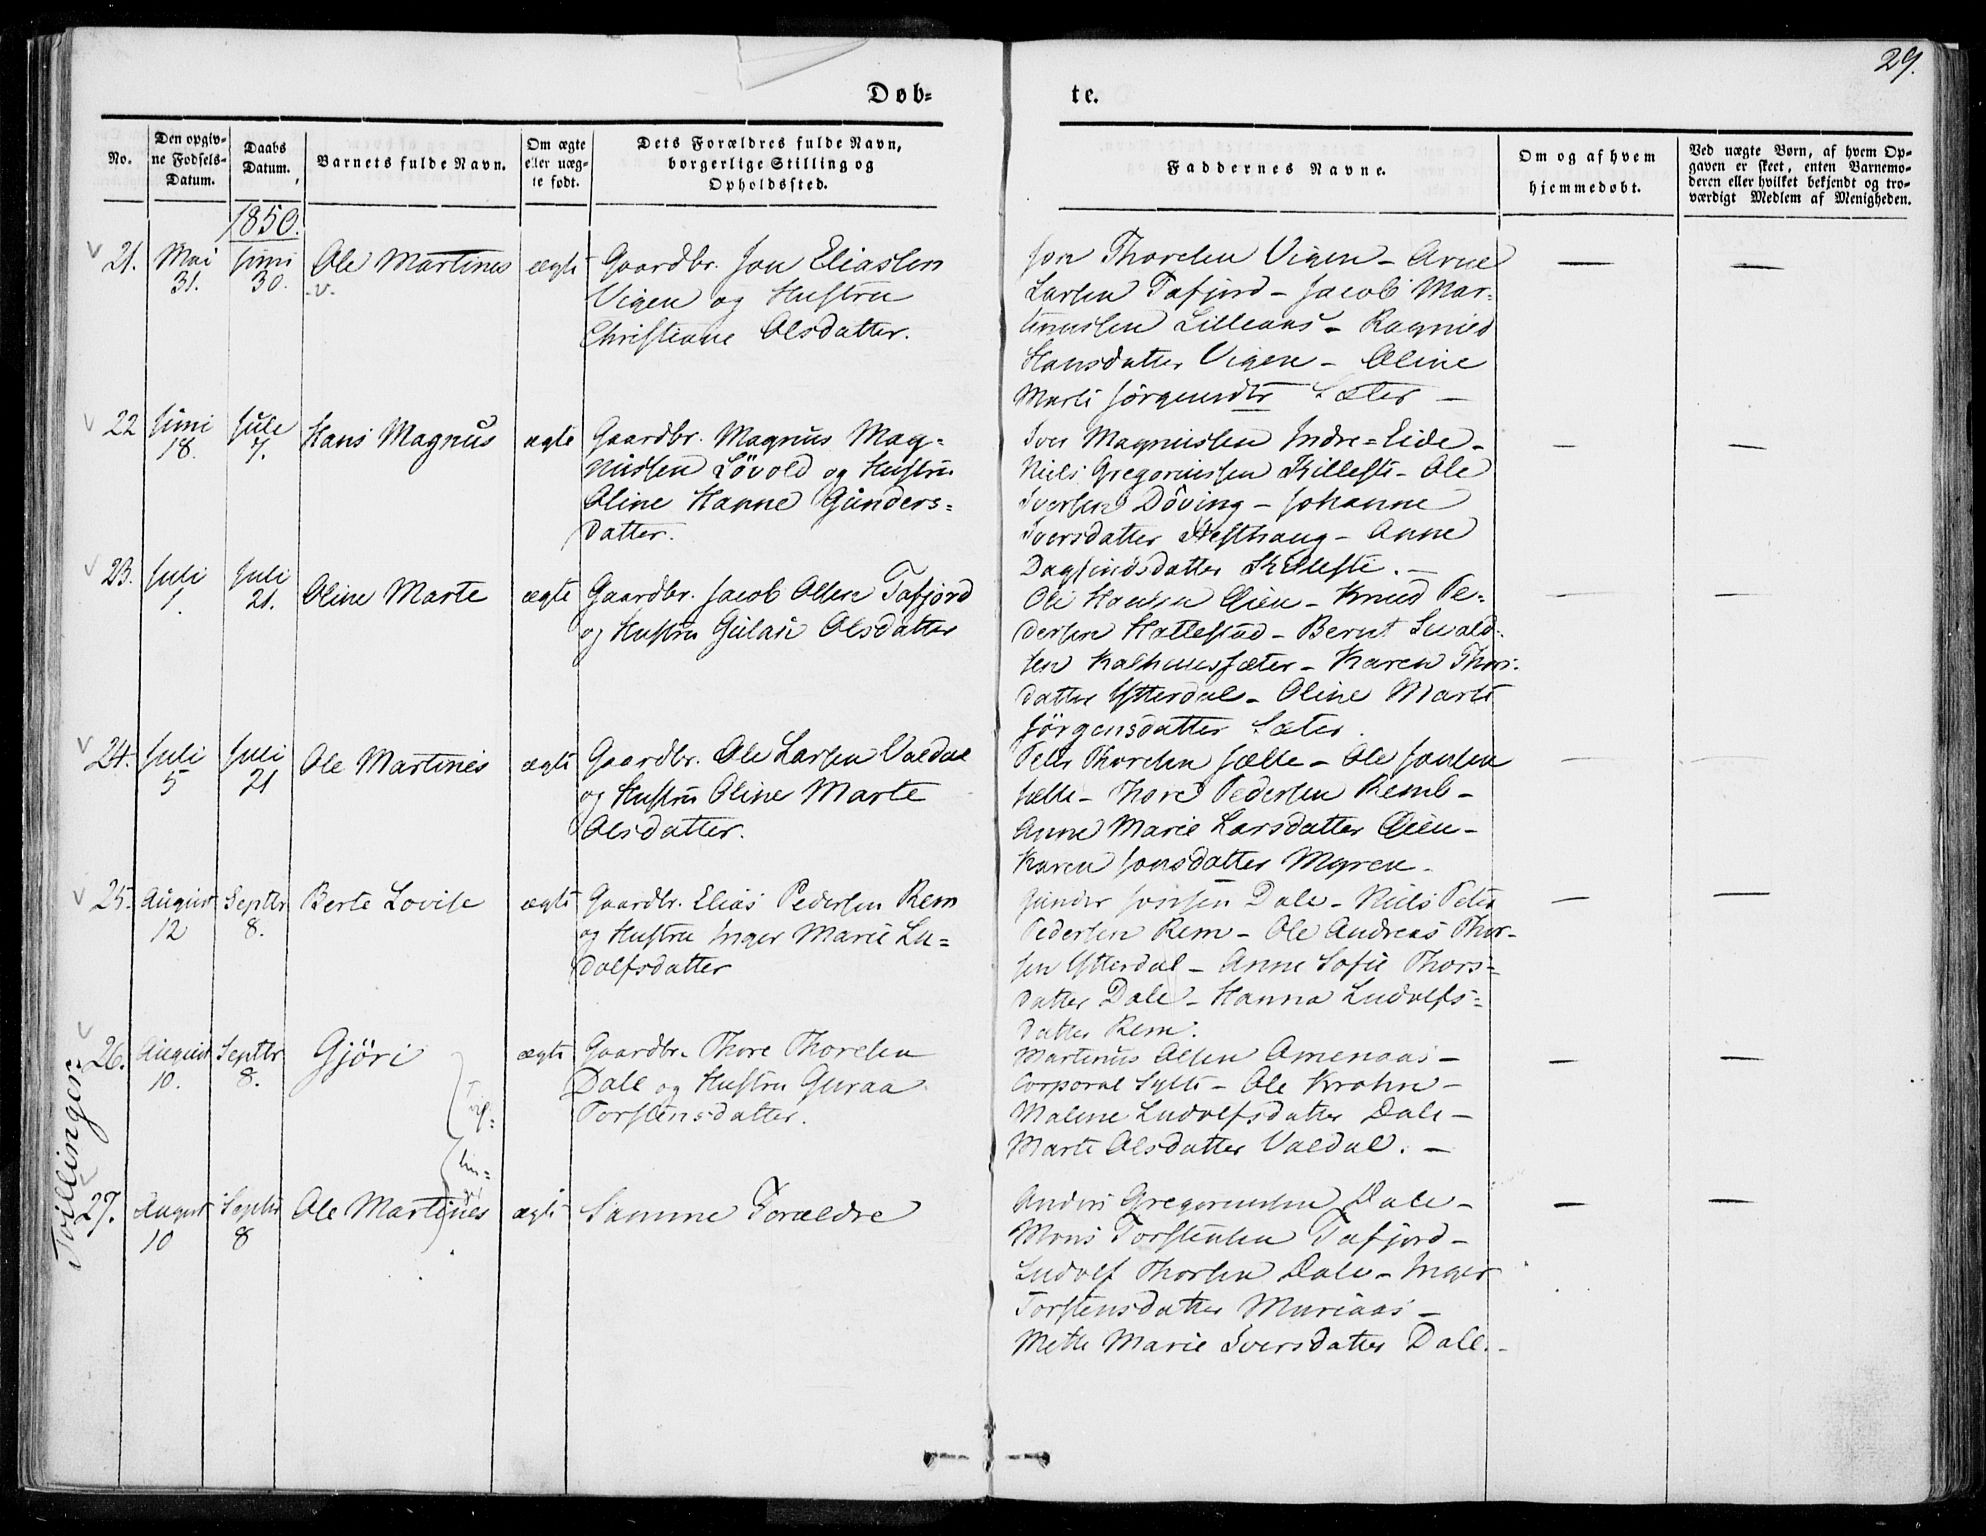 29.
Døb-
te.
No.
Den opgiv-
ne Fødsels-
Datum.
Daabs
Datum.
Barnets fulde Navn.
Om ægte
eller uæg-
te født.
Dets Forældres fulde Navn,
borgerlige Stilling og
Opholdssted.
Faddernes Navne.
Om og af hvem
hjemmedøbt.
Ved uægte Børn, af hvem Op-
gaven er skeet, enten Barnemo-
deren eller hvilket bekjendt og tro-
værdigt Medlem af Menigheden.
1850.
21.
Mai
31.
Juni
30.
Ole Martinus
ægte
Gaardbr. Jon Eliassen
Vigen og Hustru
Christiane Olsdatter.
Jon Thoresen Vigen - Arne
Larsen Tafjord - Jacob Mar-
tinussen Lilleaas - Ragnild
Hansdatter Vigen - Oline
Marte Jørgensdtr Sæter -
—
—
22
Juni
18.
Jule
7.
Hans Magnus
ægte
Gaardbr. Magnus Mag-
nussen Løvold og Hustru
Oline Hanne Gunders-
datter.
Iver Magnussen Indre-Eide -
Niels Gregoriussen Killeste - Ole
Iversen Døving - Johanne
Iversdatter Hesthaug - Anne
Dagfindsdatter Killeste. -
—
—
23.
Juli
1.
Juli
21.
Oline Marte
ægte
Gaardbr. Jacob Olsen Tafjord
og Hustru Gulau Olsdatter
Ole Hansen Øien - Knud Pe-
dersen Hallestad - Bernt Sivald-
sen Kalhussæter - Karen Thors-
datter Ytterdal - Oline Marte
Jørgensdatter Sæter.
—
—
24.
Juli
5
Juli
21
Ole Martinus
ægte
Gaardbr. Ole Larsen Valdal
og Hustru Oline Marte
Olsdatter.
Peter Thoresen Jælle - Ole Jonsen
Jælle - Thore Pedersen Remb -
Anne Marie Larsdatter Øien -
Karen Jonsdatter Myren -
—
—
25.
August
12
Septbr
8.
Berte Lovise
ægte
Gaardbr. Elias Pedersen Rem
og Hustru Inger Marie Lu-
dolfsdatter
Gunder Jonsen Dale - Niels Peter
Pedersen Rem - Ole Andreas Thor-
sen Ytterdal - Anne Sofie Thors-
datter Dale - Hanna Ludolfs-
datter Rem.
—
—
Tvillinger.
26.
August
10.
Septbr
8.
Gjøri
Tvil-
lin-
ger
ægte
Gaardbr. Thore Thoresen
Dale og Hustru Guraa
Torstensdatter.
Martinus Olsen Omenaas -
Corporal Sylte - Ole Krohn -
Maline Ludolfsdatter Dale -
Marte Olsdatter Valdal. -
—
—
27.
August
10
Septbr
8
Ole Martinus
ægte
Samme Forældre
Anders Gregoriussen Dale -
Mons Torstensen Tafjord -
Ludolf Thorsen Dale - Inger
Torstensdatter Muriaas -
Mette Marie Iversdatter Dale. -
—
—